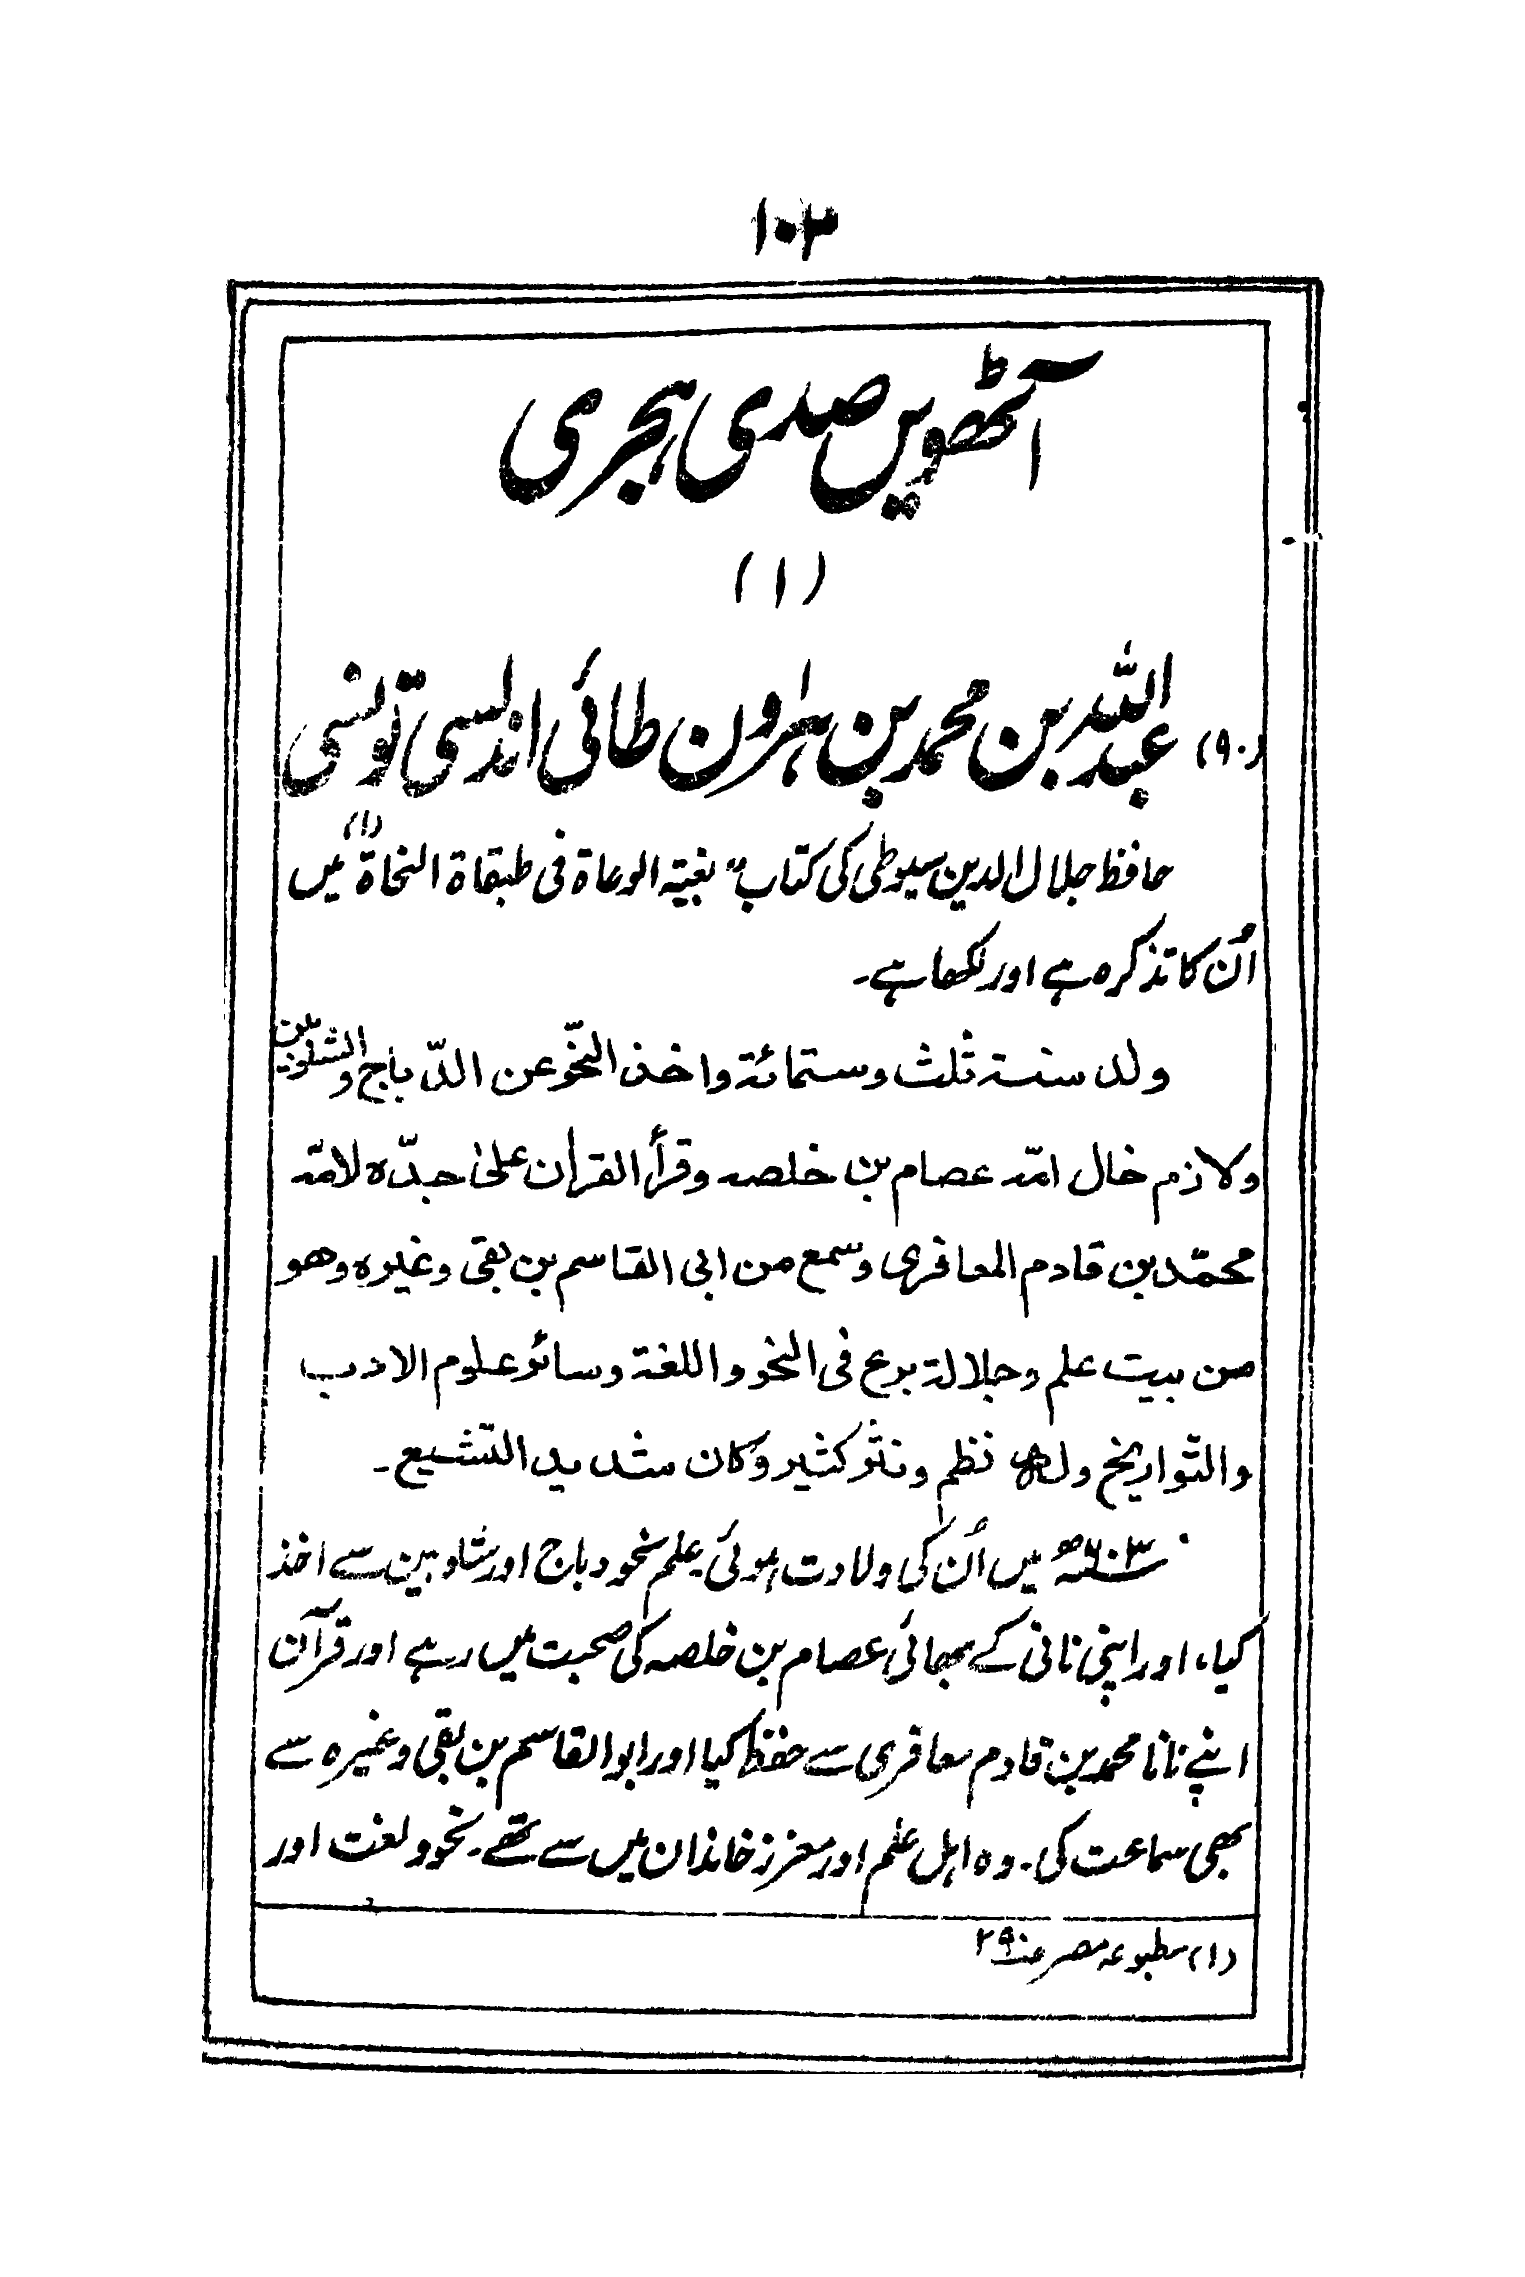 ۱۰۳
آٹھویں صدی ہجری
(۱)
(۹۰) عبداللہ بن محمد بن ہٰرون طائی اندلسی تونسی
حافظ جلال الدین سیوطی کی کتاب "بغیۃ الوعاۃ فی طبقاۃ النحاۃ (۱) میں
اُن کا تذکرہ ہے اور لکھا ہے۔
ولد سنۃ ثلث وستمائۃ واخذ النحو عن الدّباج والشلوبین
ولازم خال امّہ عصام بن خلصہ وقرأ القراٰن علیٰ جدّہ لامّہ
محمّد بن قادم المعافری وسمع من ابی القاسم بن بقی وغیرہ وھو
من بیت علم وجلالۃ برع فی النحو واللغۃ وسائر علوم الادب
والتّواریخ ولہ نظم ونثر کثیر وکان شدید التشیع۔
۶۰۳ھ میں اُن کی ولادت ہوئی۔ علم نحو دباج اور شلوبین سے اخذ
کیا، اور اپنی نانی کے بھائی عصام بن خلصہ کی صحبت میں رہے اور قرآن
اپنے نانا محمد بن قادم معافری سے حفظ کیا اور ابوالقاسم بن بقی وغیرہ سے
بھی سماعت کی۔ وہ اہل علم اور معزز خاندان میں سے تھے۔ نحو و لغت اور
(۱) مطبوعہ مصر ۲۹۰